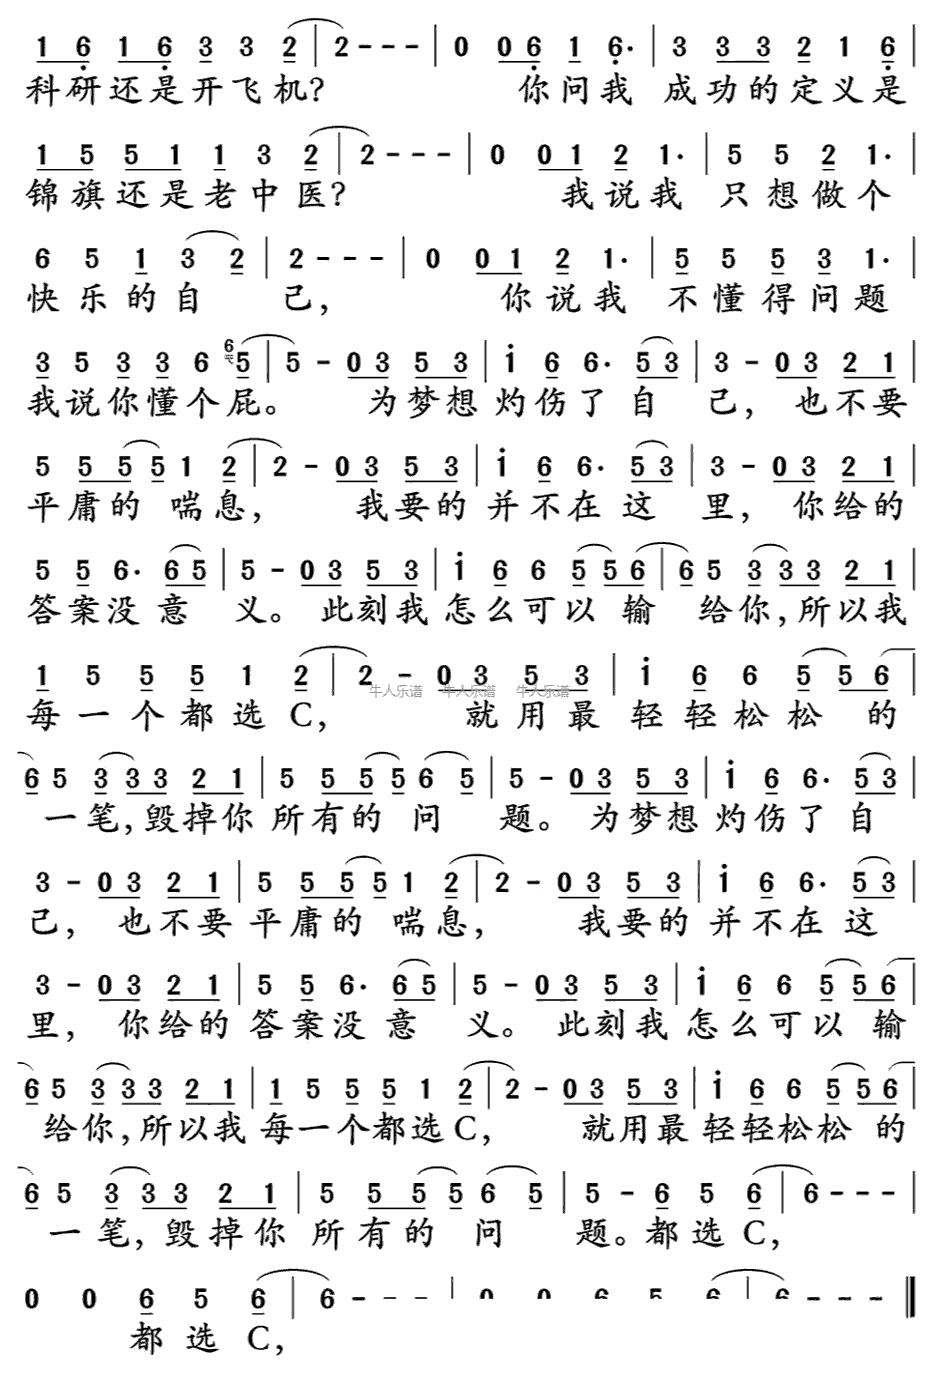 1 6 1 6 3 3 2 | 2 - - - | 0 0 6 1 6· | 3 3 3 2 1 6 |
科研还是开飞机? 你问我 成功的定义是
1 5 5 1 1 3 2 | 2 - - - | 0 0 1 2 1· | 5 5 2 1· |
锦旗还是老中医? 我说我 只想做个
6 5 1 3 2 | 2 - - - | 0 0 1 2 1· | 5 5 5 3 1· |
快乐的自 己, 你说我 不懂得问题
3 5 3 3 6 6 5 | 5 - 0 3 5 3 | i 6 6· 5 3 | 3 - 0 3 2 1 |
我说你懂个屁。 为梦想 灼伤了自 己, 也不要
5 5 5 5 1 2 | 2 - 0 3 5 3 | i 6 6· 5 3 | 3 - 0 3 2 1 |
平庸的 喘息, 我要的 并不在这 里, 你给的
5 5 6· 6 5 | 5 - 0 3 5 3 | i 6 6 5 5 6 | 6 5 3 3 3 2 1 |
答案没意 义。 此刻我 怎么可以 输 给你,所以我
1 5 5 5 1 2 | 2 - 0 3 5 3 | i 6 6 5 5 6 |
牛人乐谱 牛人乐谱 牛人乐谱
每一个都选C, 就用最 轻轻松松 的
6 5 3 3 3 2 1 | 5 5 5 5 6 5 | 5 - 0 3 5 3 | i 6 6· 5 3 |
一笔,毁掉你 所有的 问 题。 为梦想 灼伤了自
3 - 0 3 2 1 | 5 5 5 5 1 2 | 2 - 0 3 5 3 | i 6 6· 5 3 |
己, 也不要 平庸的 喘息, 我要的 并不在这
3 - 0 3 2 1 | 5 5 6· 6 5 | 5 - 0 3 5 3 | i 6 6 5 5 6 |
里, 你给的 答案没意 义。 此刻我 怎么可以 输
6 5 3 3 3 2 1 | 1 5 5 5 1 2 | 2 - 0 3 5 3 | i 6 6 5 5 6 |
给你,所以我 每一个都选C, 就用最 轻轻松松 的
6 5 3 3 3 2 1 | 5 5 5 5 6 5 | 5 - 6 5 6 | 6 - - - |
一笔,毁掉你 所有的 问 题。都选C,
0 0 6 5 6 | 6 - - - | 0 0 6 5 6 | 6 - - - ‖
都选C,